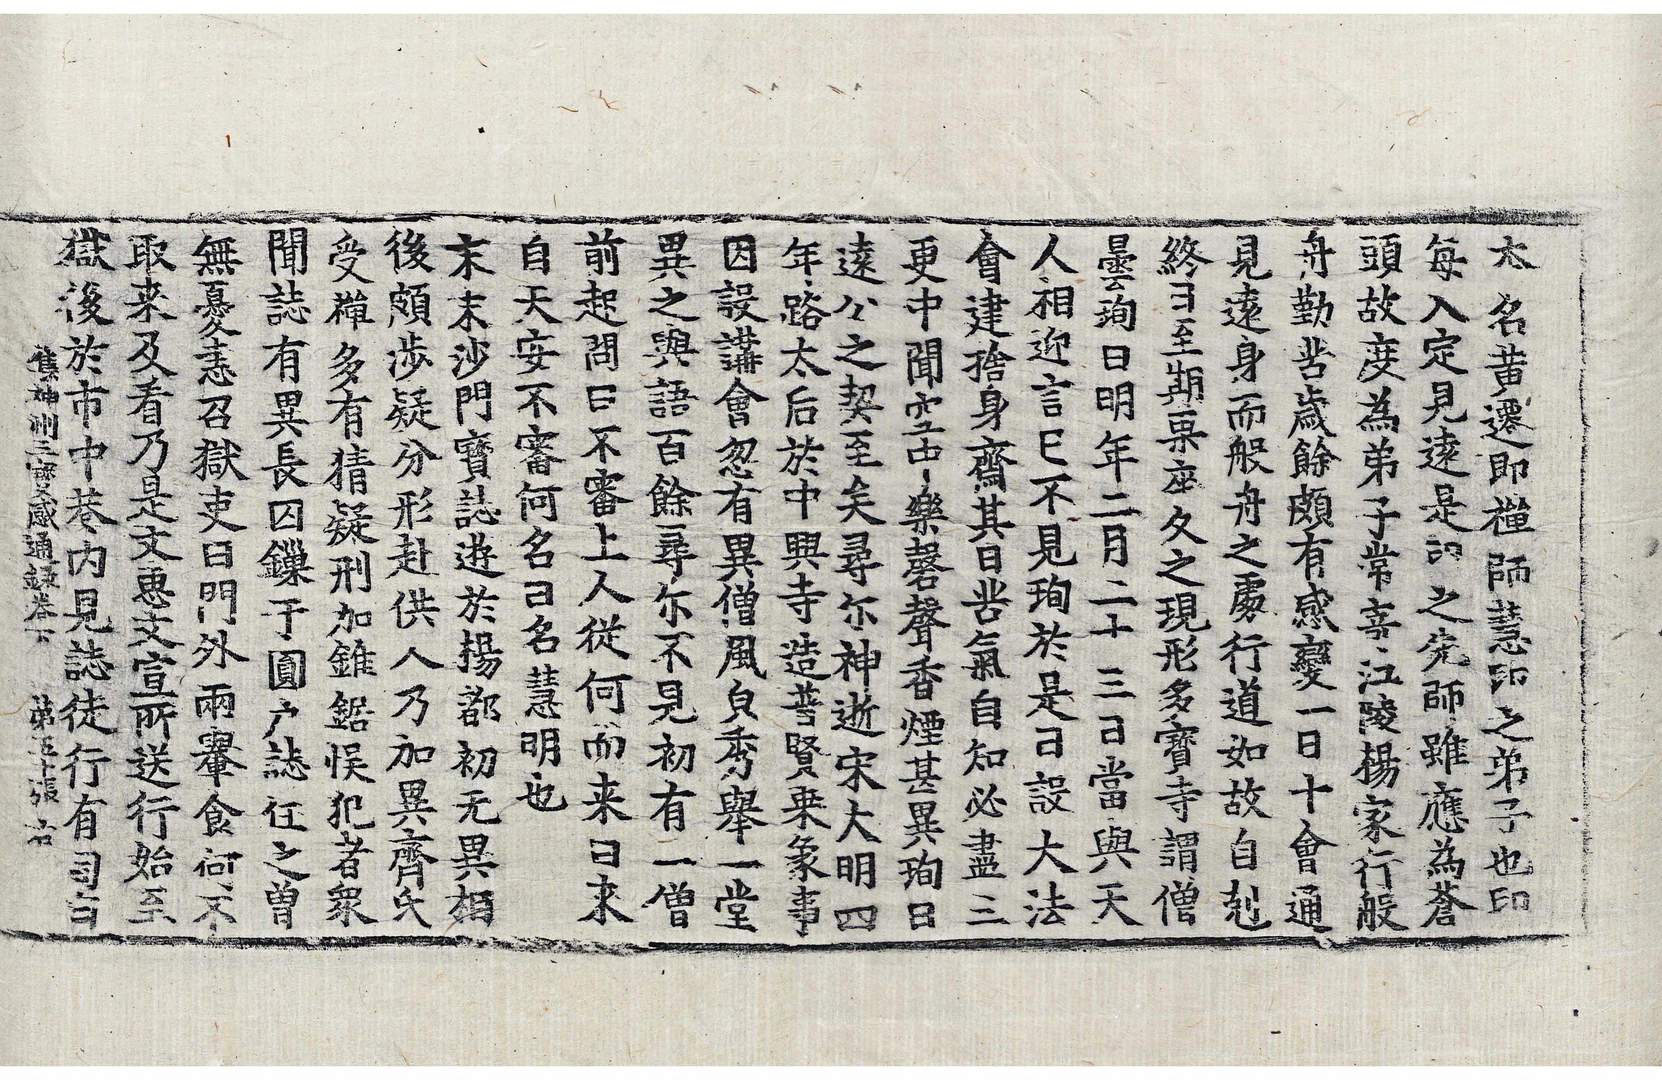 太名黃遷即禪師慧印之弟子也印
每入定見遠是印之先師雖應為蒼
頭故度為弟子常寄江陵楊家行般
舟勤苦歲餘頗有感變一日十會通
見遠身而般舟之處行道如故自剋
終日至期果座久之現形多寶寺謂僧
曇珣曰明年二月二十三日當與天
人相迎言已不見珣於是日設大法
會建捨身齋其日苦氣自知必盡三
更中聞空中樂磬聲香煙甚異珣曰
遠公之契至矣尋尒神逝宋大明四
年路太后於中興寺造普賢乗象事
因設講會忽有異僧風皃秀舉一堂
異之與語百餘尋尒不見初有一僧
前起問曰不審上人從何而来曰来
自天安不審何名曰名慧明也
末末沙門寶誌遊於揚都初无異相
後頗涉疑分形赴供人乃加異齊氏
受禪多有猜疑刑加錐鋸悮犯者衆
聞誌有異長囚鏁于圓戶誌任之曾
無憂恚召獄吏曰門外兩轝食何不
取来及看乃是文惠文宣所送行始至
獄後於市中巷內見誌徒行有司白
集神州三寶感通録卷下 第五十張 右